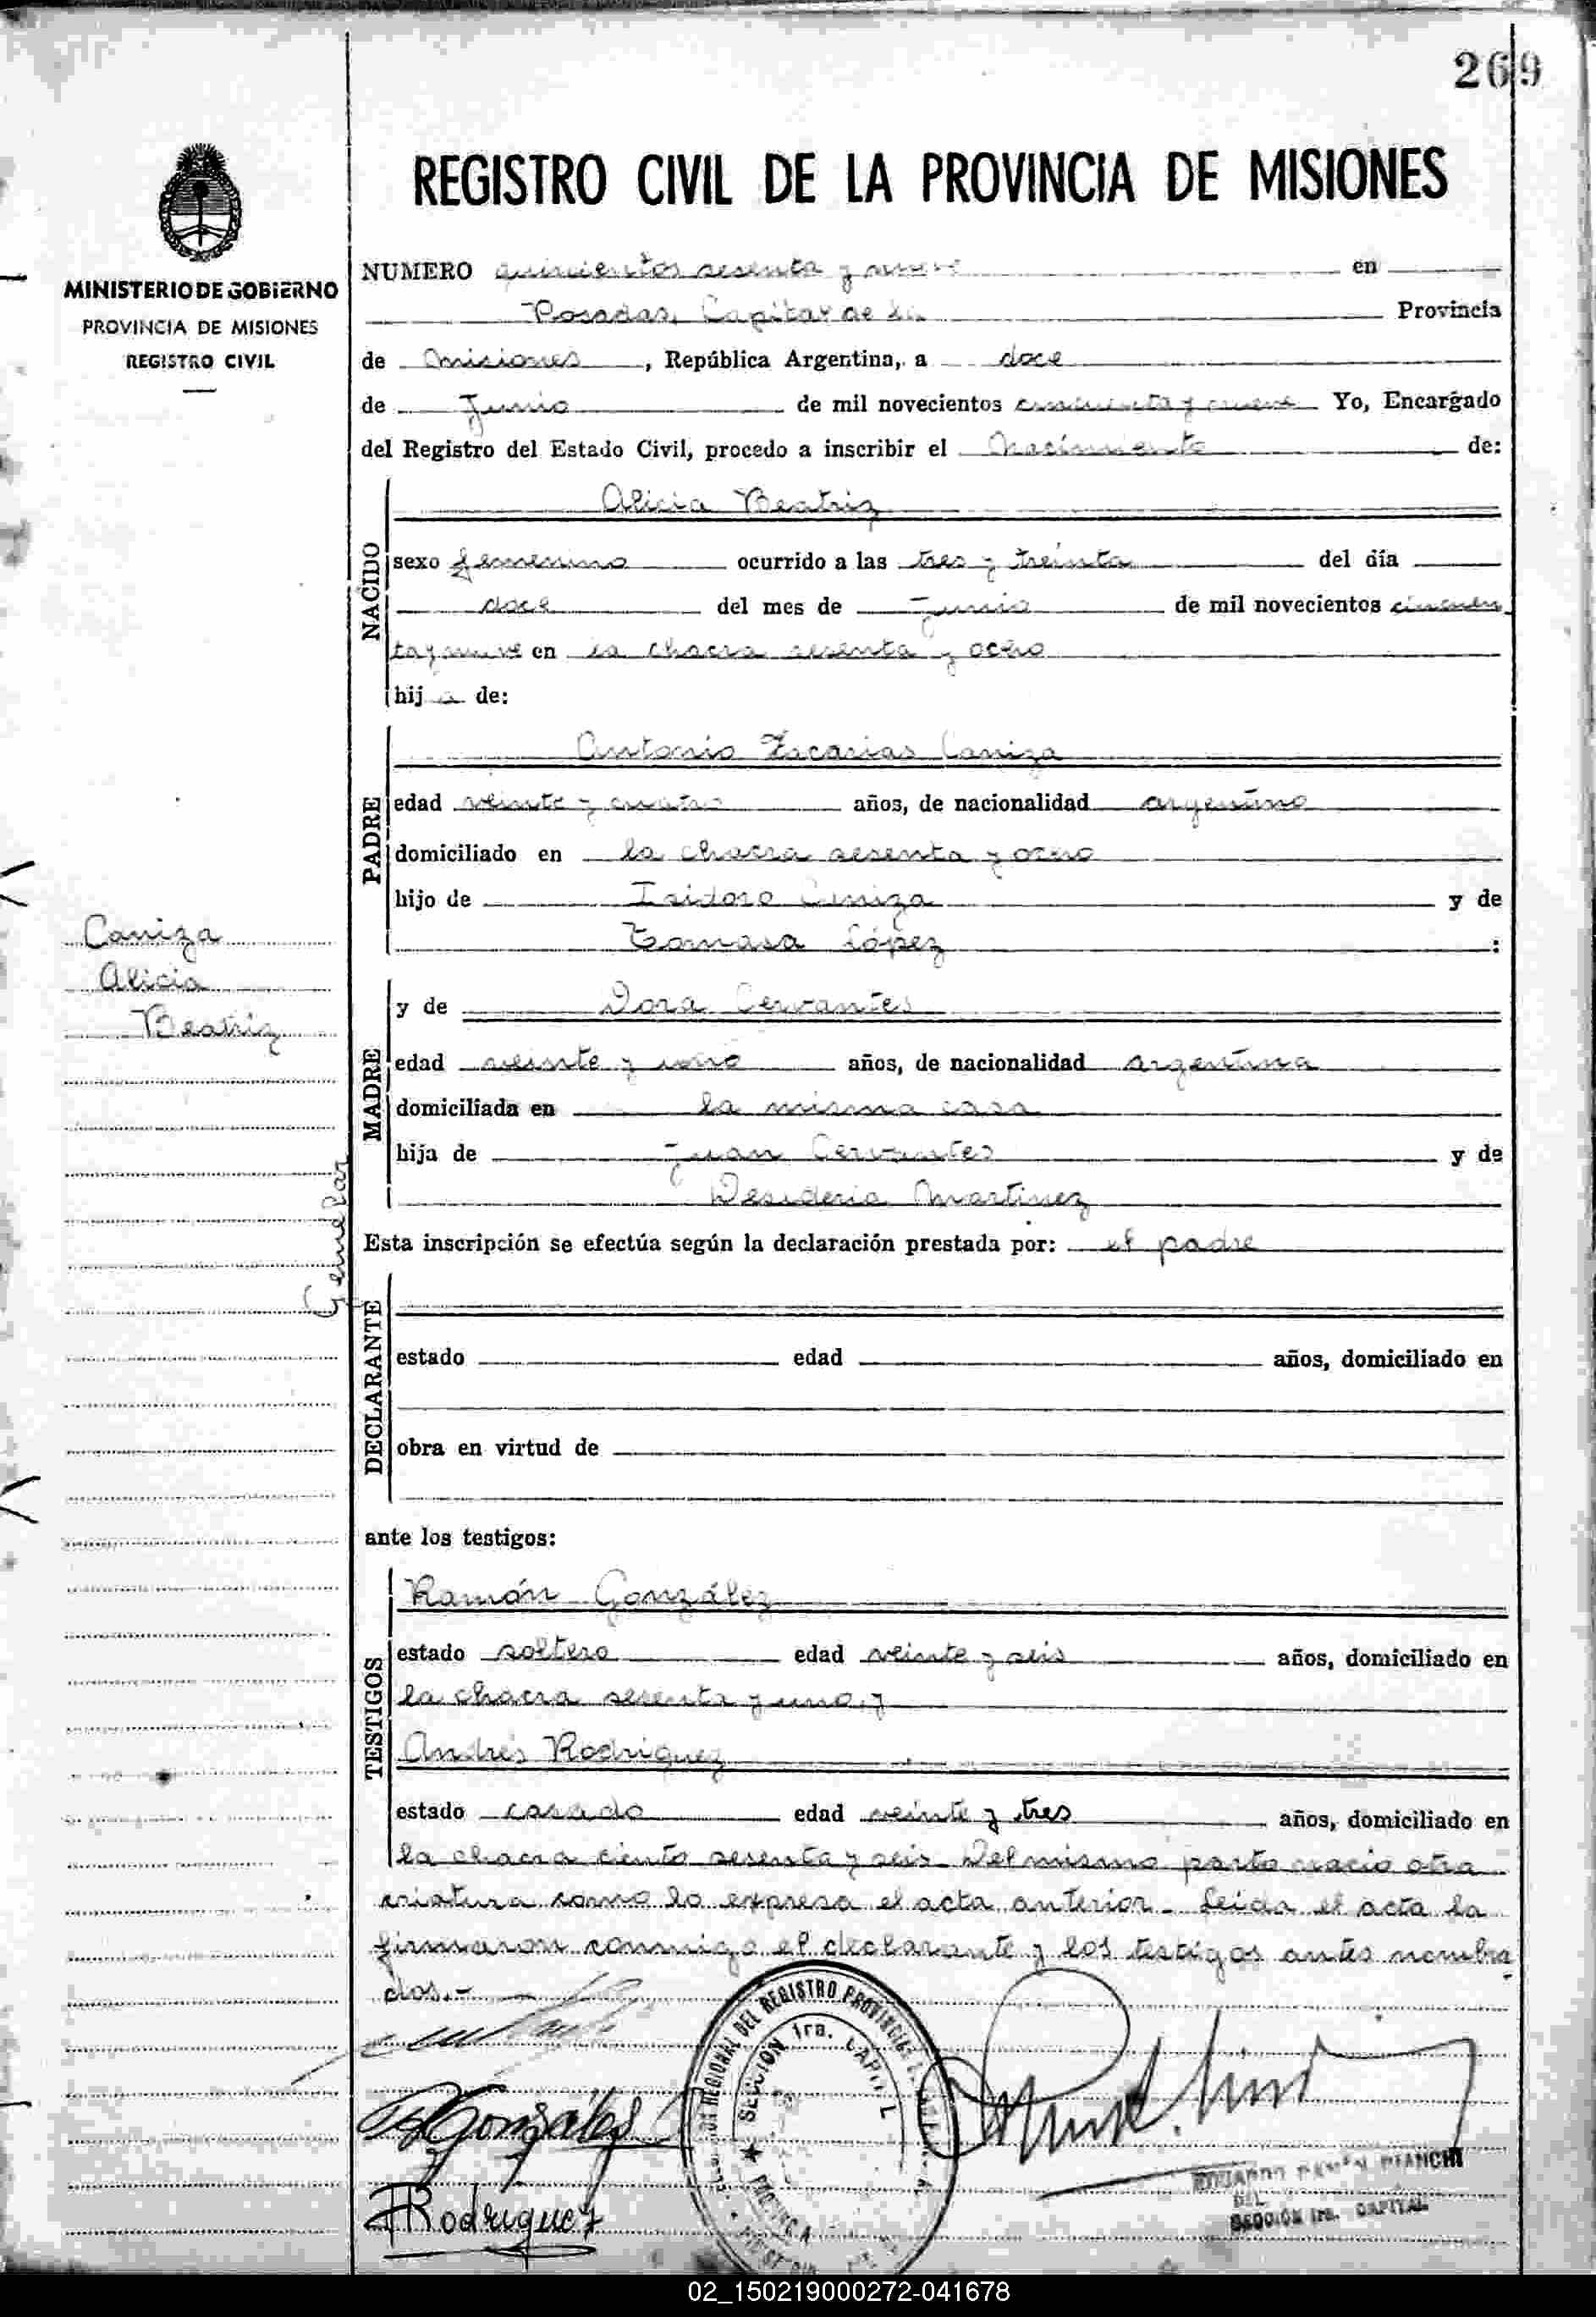 269
REGISTRO CIVIL DE LA PROVINCIA DE MISIONES
MINISTERIO DE GOBIERNO
PROVINCIA DE MISIONES
REGISTRO CIVIL
NUMERO quinientos sesenta y nueve en
Posadas, Capital de la Provincia
de Misiones, República Argentina, a doce
de Junio de mil novecientos cincuenta y nueve Yo, Encargado
del Registro del Estado Civil, procedo a inscribir el Nacimiento de:
NACIDO
Alicia Beatriz
sexo femenino ocurrido a las tres y treinta del día
doce del mes de Junio de mil novecientos cincuen
ta y nueve en la chacra sesenta y ocho
hija de:
PADRE
Antonio Zacarias Caniza
edad veinte y cuatro años, de nacionalidad argentino
domiciliado en la chacra sesenta y ocho
hijo de Isidoro Caniza y de
Tomasa López :
Caniza
Alicia
Beatriz
Gemelar
MADRE
y de Dora Cervantes
edad veinte y uno años, de nacionalidad argentina
domiciliada en la misma casa
hija de Juan Cervantes y de
Desideria Martinez
Esta inscripción se efectúa según la declaración prestada por: el padre
DECLARANTE
estado edad años, domiciliado en
obra en virtud de
ante los testigos:
TESTIGOS
Ramón González
estado soltero edad veinte y seis años, domiciliado en
la chacra sesenta y uno, y
Andrés Rodriguez
estado casado edad veinte y tres años, domiciliado en
la chacra ciento sesenta y seis. Del mismo parto nació otra
criatura como lo expresa el acta anterior. Leida el acta la
firmaron conmigo el declarante y los testigos antes nombra
dos.-
REGIONAL DEL REGISTRO PROVINCIAL
SECCION 1ra. CAPITAL
Gonzáles
Rodriguez
EDUARDO RAMÓN BIANCHI
SECCIÓN 1ra. CAPITAL
02_150219000272-041678